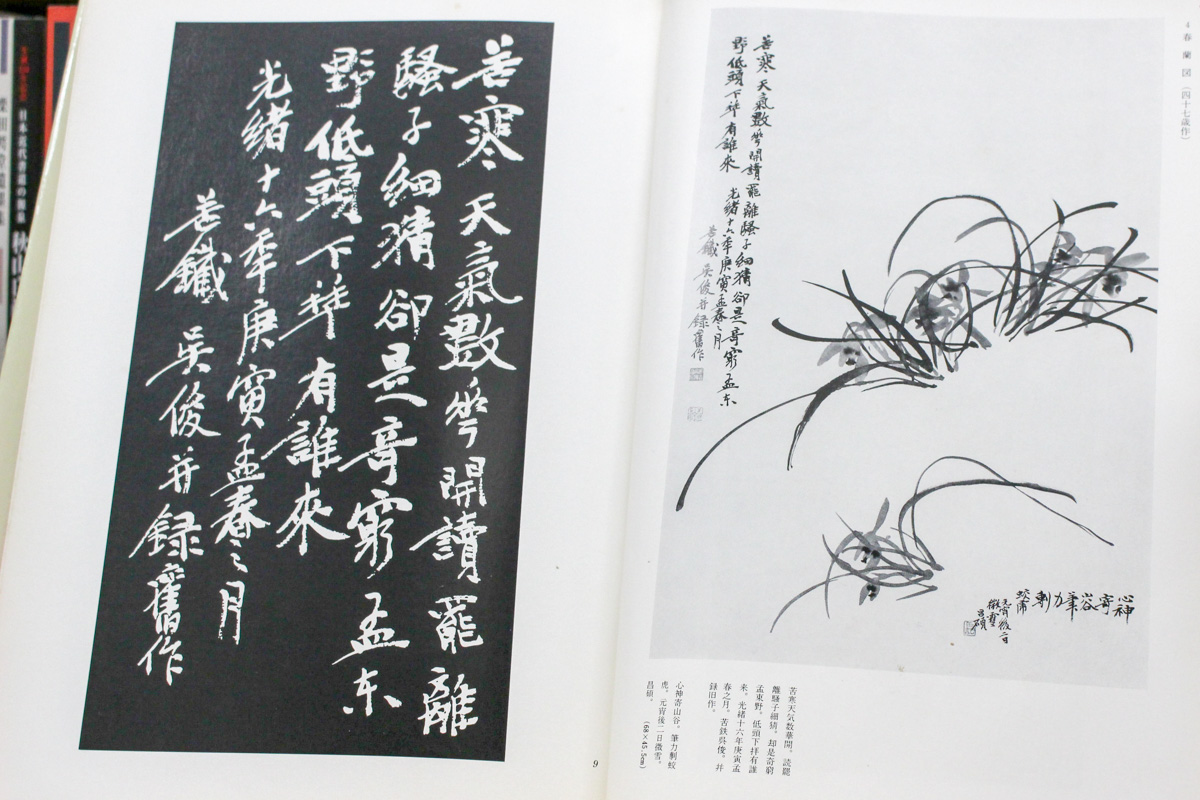 4 春蘭図（四十七歳作）
苦寒天氣數華開讀罷離騷子細猜卻是奇窮孟东
野低頭下拜有誰來 光緒十六年庚寅孟春之月
苦鐵 吳俊并録舊作
心神
寄山谷
筆力
蛟虎
元宵後二日
微雪
昌碩
苦寒天気数華開。読罷
離騒子細猜。却是奇窮
孟東野。低頭下拝有誰
来。光緒十六年庚寅孟
春之月。苦鉄呉俊。并
録旧作。
心神寄山谷。筆力剸蛟
虎。元宵後二日微雪。
昌碩。 (68×45.5cm)
苦寒天氣數華開讀罷離
騷子細猜卻是奇窮孟东
野低頭下拜有誰來
光緒十六年庚寅孟春之月
苦鐵吳俊并録舊作
9
日本近代書道の